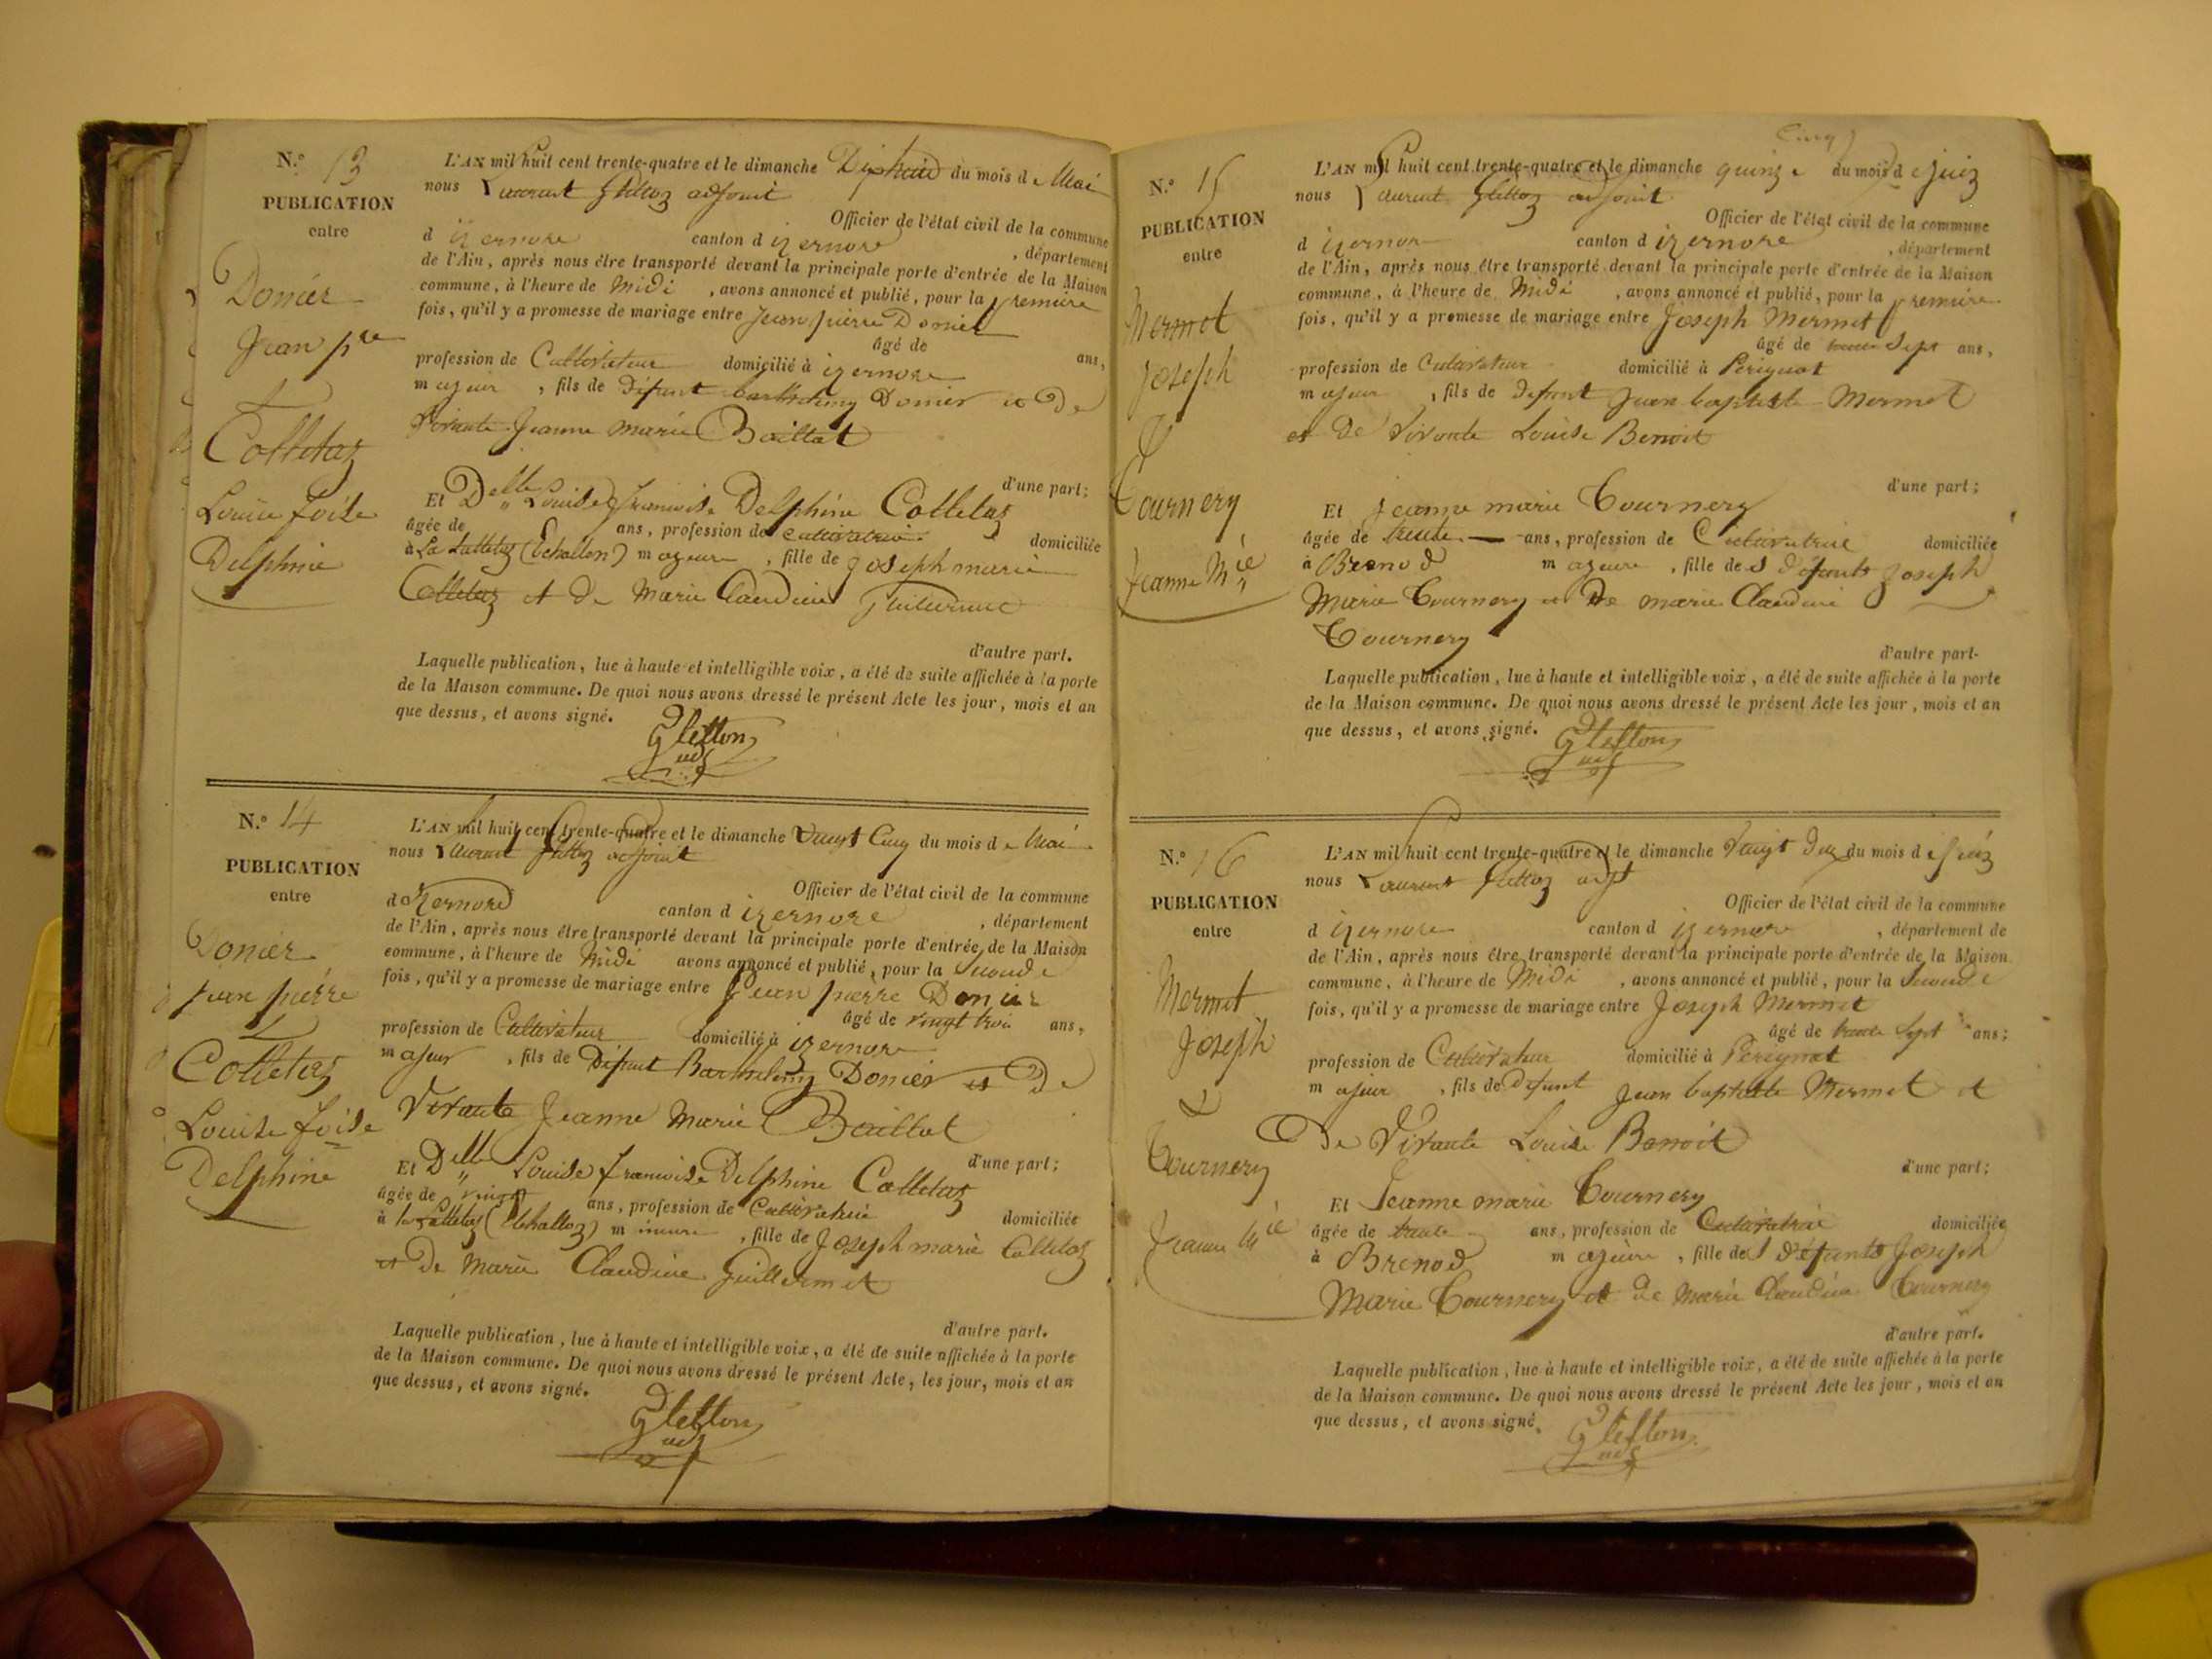 N.o 13
PUBLICATION
entre
Donier
Jean pre
&
Colletaz
Louise foise
Delphine
L'AN mil huit cent trente-quatre et le dimanche Dixhuit du mois de Mai
nous Laurent Gletton adjoint
Officier de l'état civil de la commune
d izernore canton d izernore , département
de l'Ain, après nous être transporté devant la principale porte d'entrée de la Maison
commune, à l'heure de Midi , avons annoncé et publié, pour la premiere
fois, qu'il y a promesse de mariage entre Jean pierre Donier
âgé de ans,
profession de Cultivateur domicilié à izernore
majeur , fils de Défunt barthelemy Donier et De
Vivante Jeanne marie Baillat
d'une part;
Et Delle Louise francoise Delphine Colletaz
âgée de ans, profession de cultivatrice domiciliée
à La (Echallon) majeure , fille de Joseph marie
Colletaz et De Marie Claudine Guillermet
d'autre part.
Laquelle publication, lue à haute et intelligible voix, a été de suite affichée à la porte
de la Maison commune. De quoi nous avons dressé le présent Acte les jour, mois et an
que dessus, et avons signé.
Gletton
adj
N.o 14
PUBLICATION
entre
Donier
Jean pierre
&
Colletaz
Louise foise
Delphine
L'AN mil huit cent trente-quatre et le dimanche Vingt Cinq du mois de Mai
nous Laurent Gletton adjoint
Officier de l'état civil de la commune
d izernore canton d izernore , département
de l'Ain, après nous être transporté devant la principale porte d'entrée de la Maison
commune, à l'heure de Midi avons annoncé et publié, pour la Seconde
fois, qu'il y a promesse de mariage entre Jean pierre Donier
âgé de vingt trois ans,
profession de Cultivateur domicilié à izernore
majeur , fils de Défunt Barthelemy Donier et De
Vivante Jeanne Marie Baillat
d'une part;
Et Delle Louise francoise Delphine Colletaz
âgée de vingt ans, profession de Cultivatrice domiciliée
à mineure , fille de Joseph marie Colletaz
et De Marie Claudine Guillermet
d'autre part.
Laquelle publication, lue à haute et intelligible voix, a été de suite affichée à la porte
de la Maison commune. De quoi nous avons dressé le présent Acte, les jour, mois et an
que dessus, et avons signé.
Gletton
adj
Cinq
N.o 15
PUBLICATION
entre
Mermet
Joseph
&
Tournery
Jeanne Mie
L'AN mil huit cent trente-quatre et le dimanche quinze du mois de juin
nous Laurent Gletton adjoint
Officier de l'état civil de la commune
d izernore canton d izernore , département
de l'Ain, après nous être transporté devant la principale porte d'entrée de la Maison
commune, à l'heure de Midi , avons annoncé et publié, pour la premiere
fois, qu'il y a promesse de mariage entre Joseph Mermet
âgé de trente Sept ans,
profession de Cultivateur domicilié à Perignat
majeur , fils de Defunt Jean baptiste Mermet
et De Vivante Louise Benoit
d'une part;
Et Jeanne marie Tournery
âgée de trente ans, profession de Cultivatrice domiciliée
à Brenod majeure , fille des défunts Joseph
Marie Tournery et De marie Claudine
Tournery
d'autre part.
Laquelle publication, lue à haute et intelligible voix, a été de suite affichée à la porte
de la Maison commune. De quoi nous avons dressé le présent Acte les jour, mois et an
que dessus, et avons signé.
Gletton
adj
N.o 16
PUBLICATION
entre
Mermet
Joseph
&
Tournery
Jeanne Mie
L'AN mil huit cent trente-quatre et le dimanche Vingt Deux du mois de juin
nous Laurent Gletton adjt
Officier de l'état civil de la commune
d izernore canton d izernore , département de
de l'Ain, après nous être transporté devant la principale porte d'entrée de la Maison
commune, à l'heure de Midi , avons annoncé et publié, pour la Seconde
fois, qu'il y a promesse de mariage entre Joseph Mermet
âgé de trente Sept ans;
profession de Cultivateur domicilié à Perignat
majeur , fils de Defunt Jean baptiste Mermet et
De Vivante Louise Benoit
d'une part;
Et Jeanne marie Tournery
âgée de trente ans, profession de Cultivatrice domiciliée
à Brenod majeure , fille des défunts Joseph
Marie Tournery et de Marie Claudine Tournery
d'autre part.
Laquelle publication, lue à haute et intelligible voix, a été de suite affichée à la porte
de la Maison commune. De quoi nous avons dressé le présent Acte les jour, mois et an
que dessus, et avons signé.
Gletton
adj